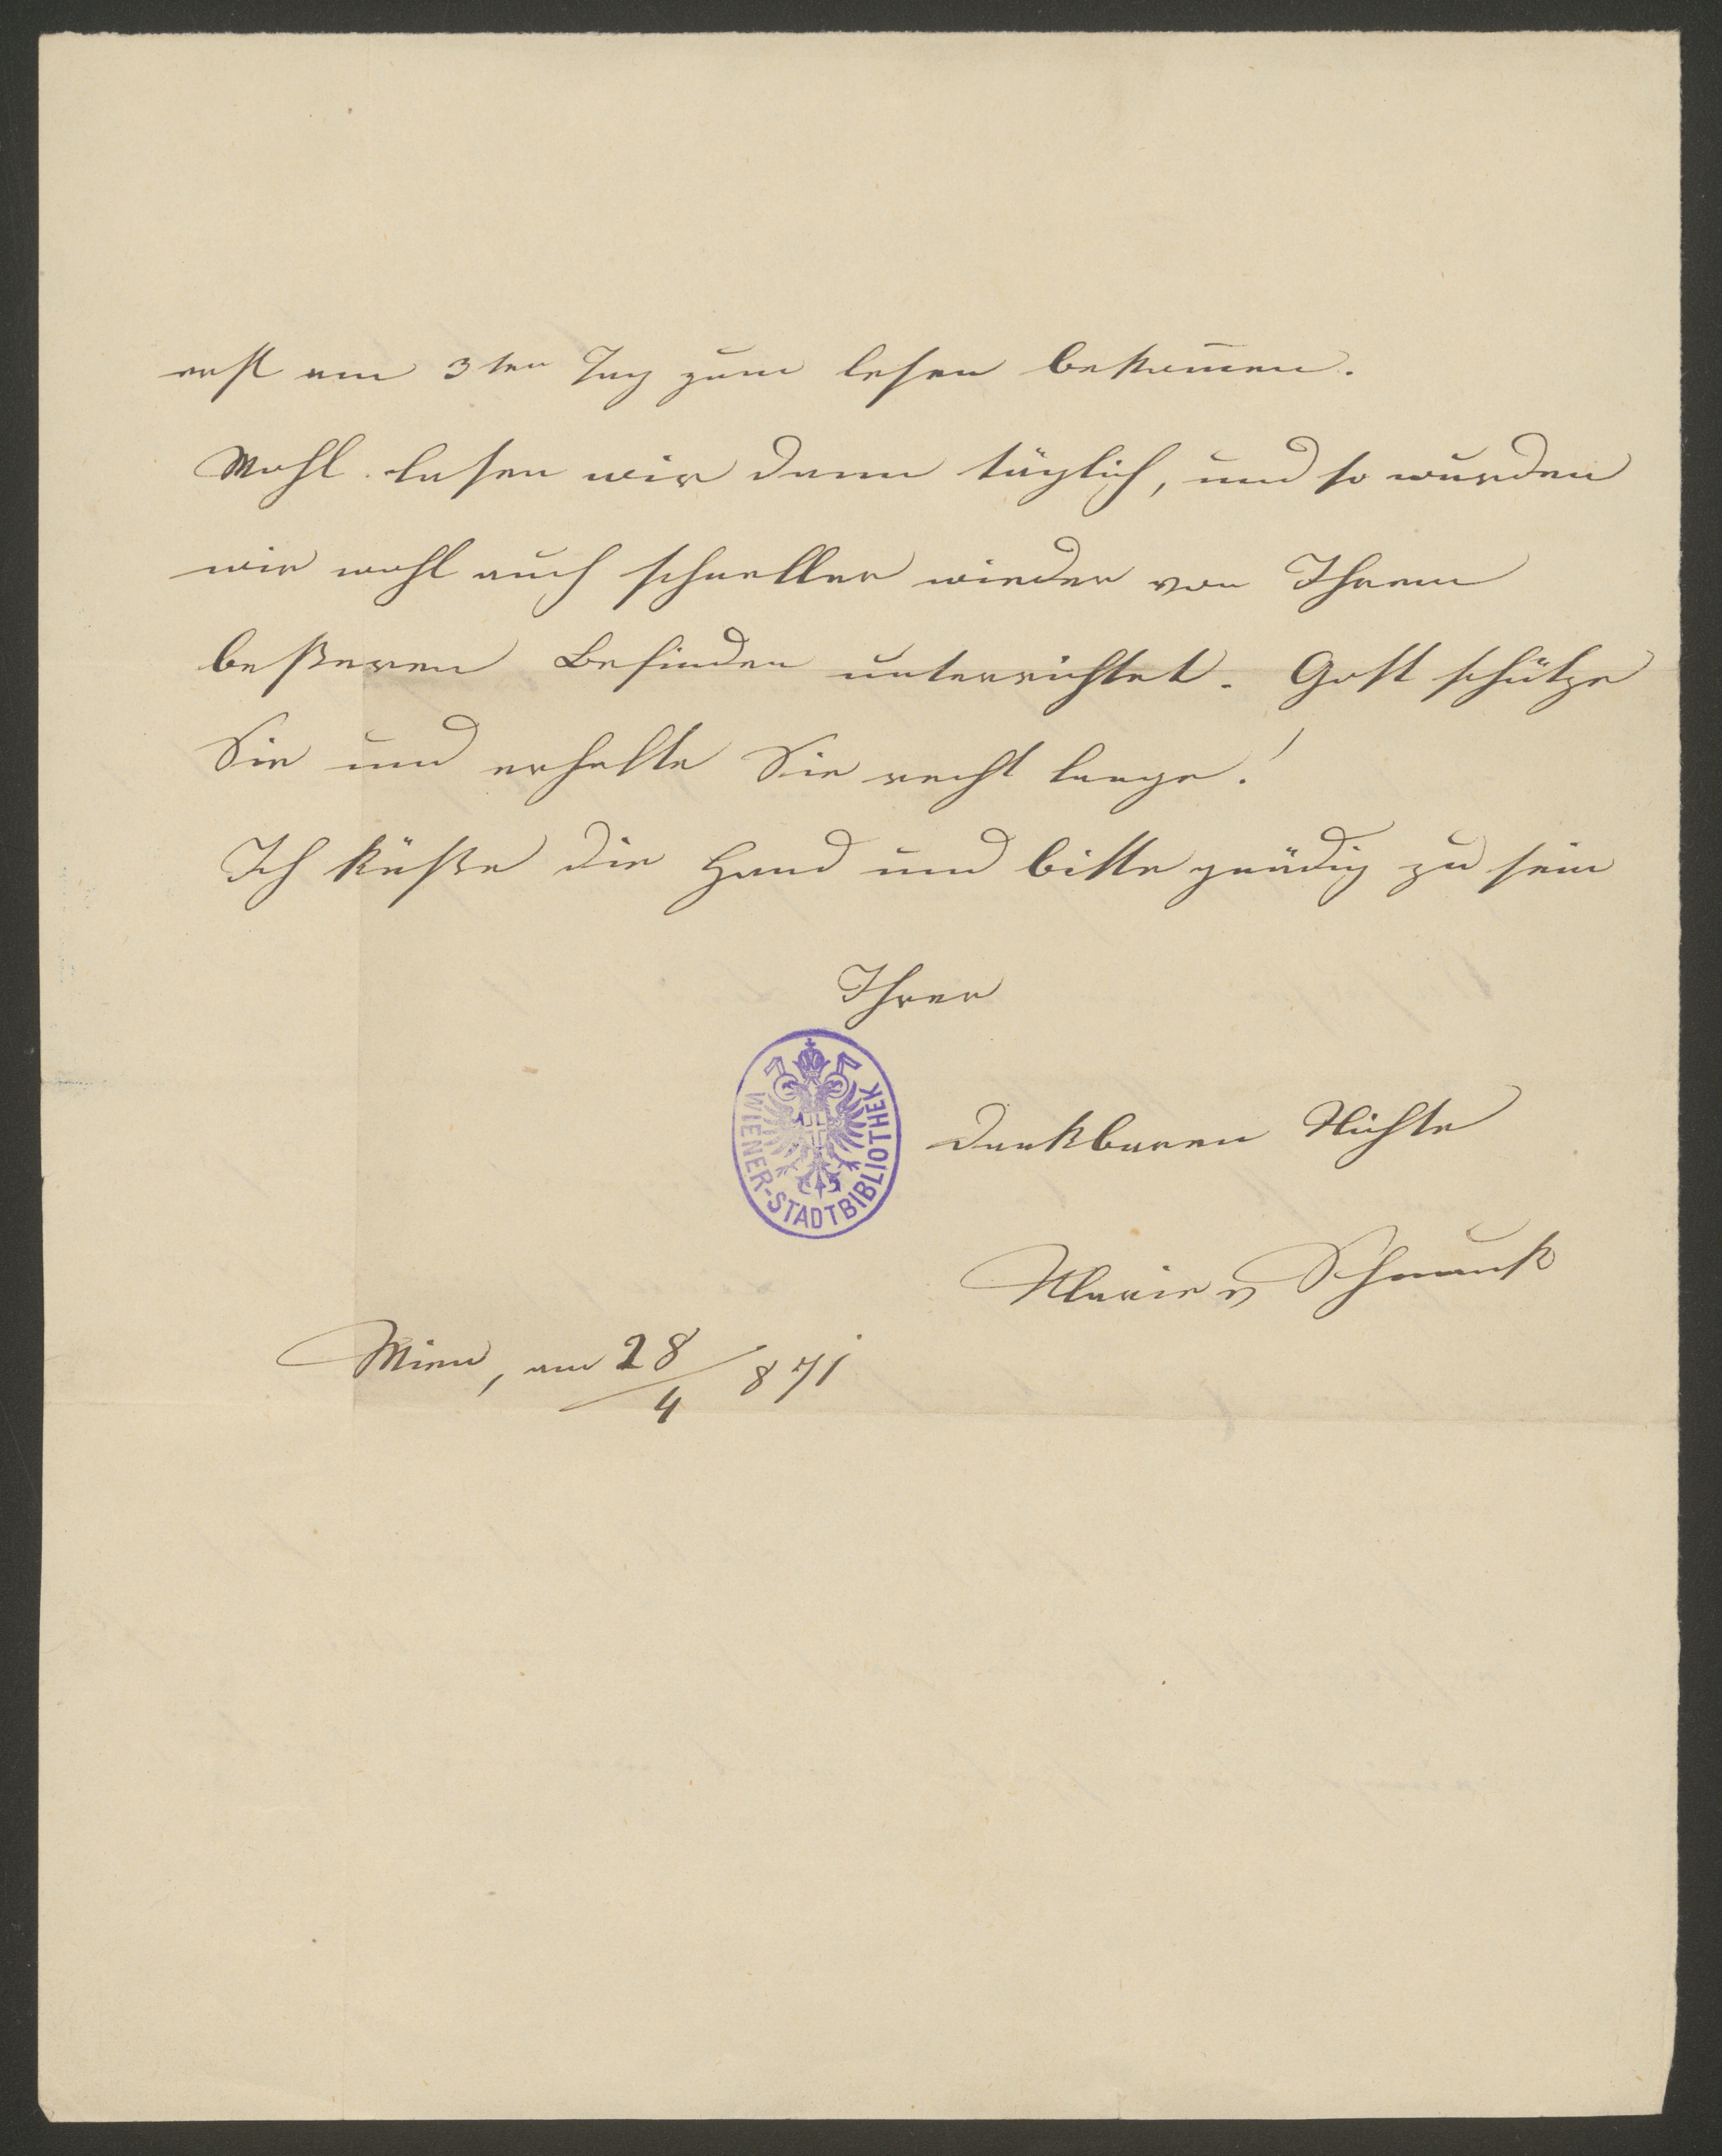 erst am 3ten Tag zum lesen bekom̅en.
Wohl lasen wir dann täglich, und so wurden
wir wohl auch schneller wieder von Ihrem
beßeren Befinden unterrichtet. Gott schütze
Sie und erhalte Sie recht lange!
Ich küße die Hand und bitte gnädig zu sein
Ihrer
WIENER-STADTBIBLIOTHEK
dankbaren Nichte
Marie v
Wien, am 28/4 871